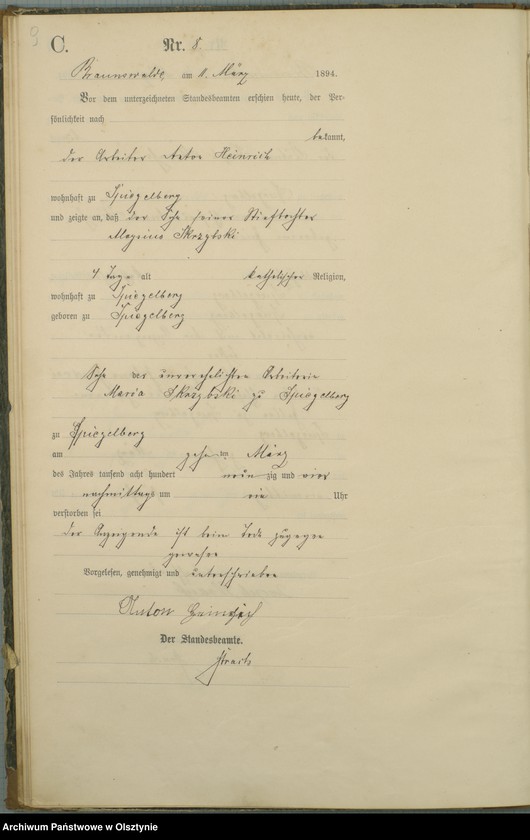 9
C.
Nr. 8.
Braunswalde, am 11. März 1894.
Vor dem unterzeichneten Standesbeamten erschien heute, der Per-
sönlichkeit nach
bekannt,
der Arbeiter Anton Heinrich
wohnhaft zu Spiegelberg
und zeigte an, daß der Sohn seiner Stieftochter
Skrzybski
4 Tage alt katholischer Religion,
wohnhaft zu Spiegelberg
geboren zu Spiegelberg
Sohn der unverehelichten Arbeiterin
Maria Skrzybski zu Spiegelberg
zu Spiegelberg
am zehn ten März
des Jahres tausend acht hundert neun zig und vier
nachmittags um ein Uhr
verstorben sei
der Anzeigende ist beim Tode zugegen
gewesen
Vorgelesen, genehmigt und unterschrieben
Anton Heinrich
Der Standesbeamte.
Archiwum Państwowe w Olsztynie